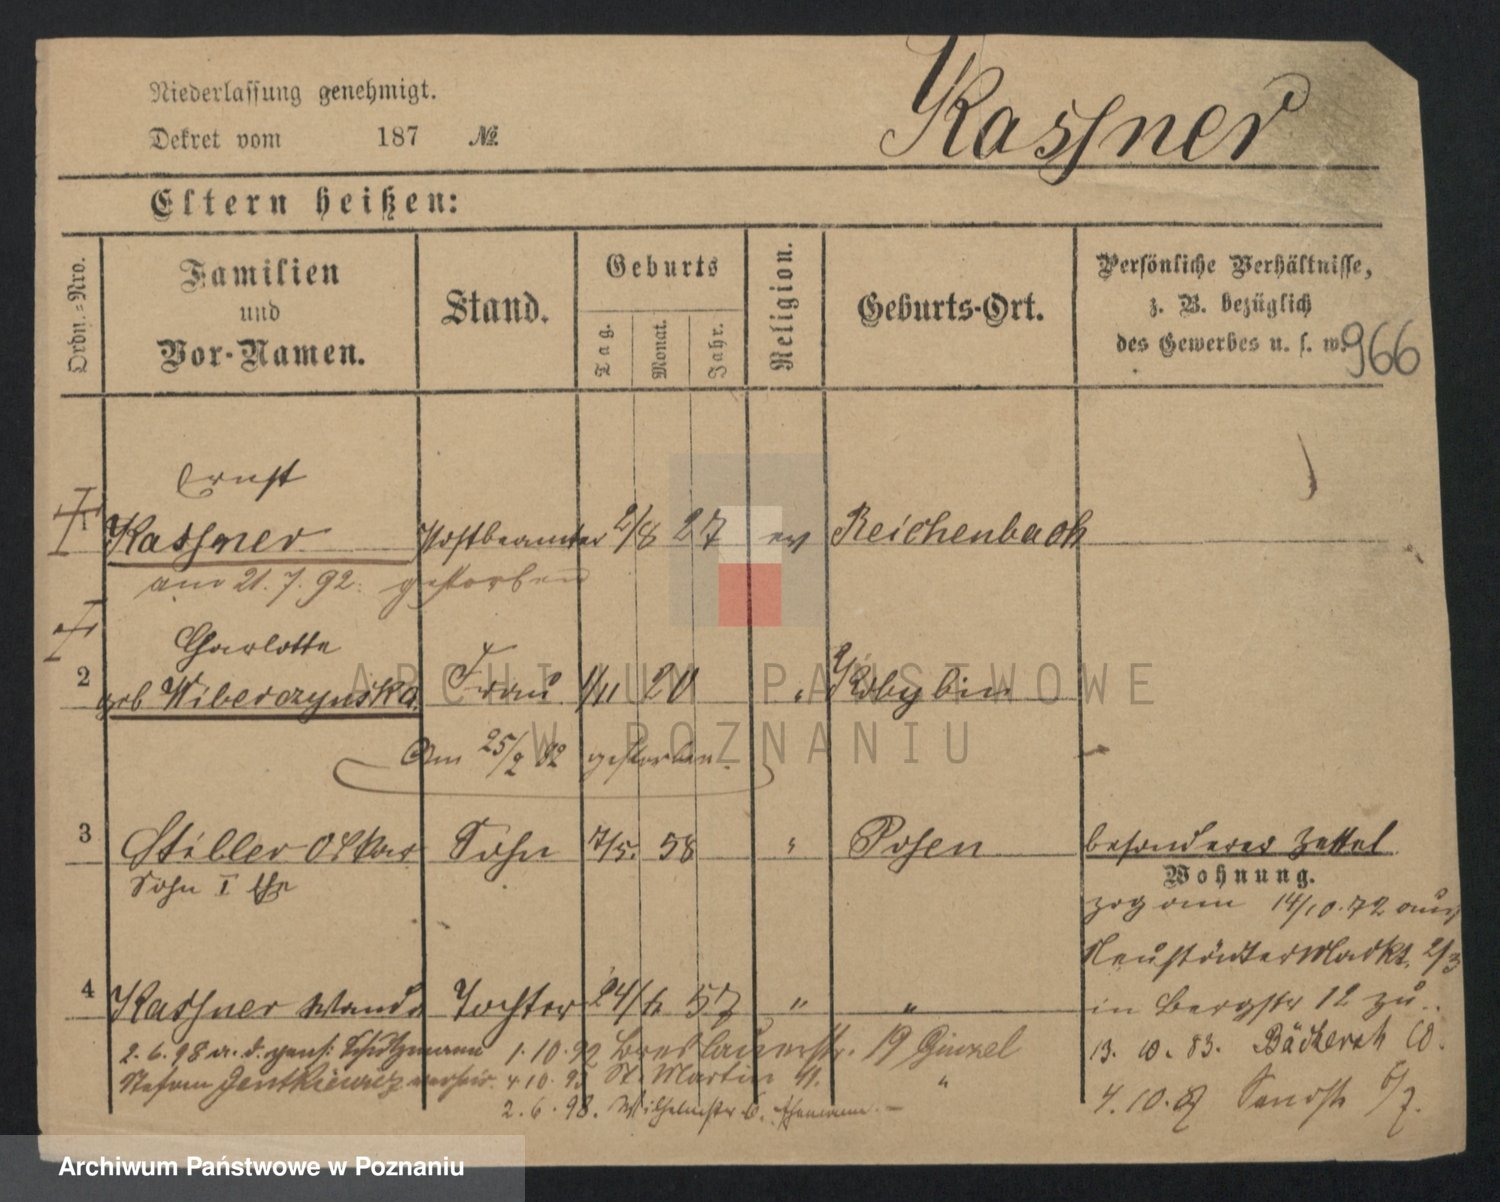 Niederlassung genehmigt.
Dekret vom 187 №
Kassner
Eltern heißen:
Ordn.-Nro.
Familien und Vor-Namen.
Stand.
Geburts
Tag. Monat. Jahr.
Religion.
Geburts-Ort.
Persönliche Verhältnisse,
z. B. bezüglich
des Gewerbes u. s. w.
966
Ernst
1 Kassner Postbeamter 2/8 27 ev Reichenbach
am 21. 7. 92. gestorben
Charlotte
2 geb Frau 1/11 20 " Kobylin
Am 25/2 gestorben.
3 Stiller Oskar Sohn 7/5. 58 " Posen besonderer Zettel
Sohn I Ehe
Wohnung.
zog am 14/10. 72 aus
Neustädter Markt 2/3
4 Kassner Wanda Tochter 24/6 57 " " in Bergstr 12 zu
2. 6. 98 a. d. Schutzmann 1. 10. 92 Breslauerstr. 19 Ginzel
13. 10. 83. Bäckerstr 10.
Stefan Jentkiewicz 4. 10. 95 St. Martin "
4. 10. 87 Sandstr 6/7.
2. 6. 98. Wilhelmstr 6. Ehemann. —
ARCHIWUM PAŃSTWOWE
W POZNANIU
Archiwum Państwowe w Poznaniu